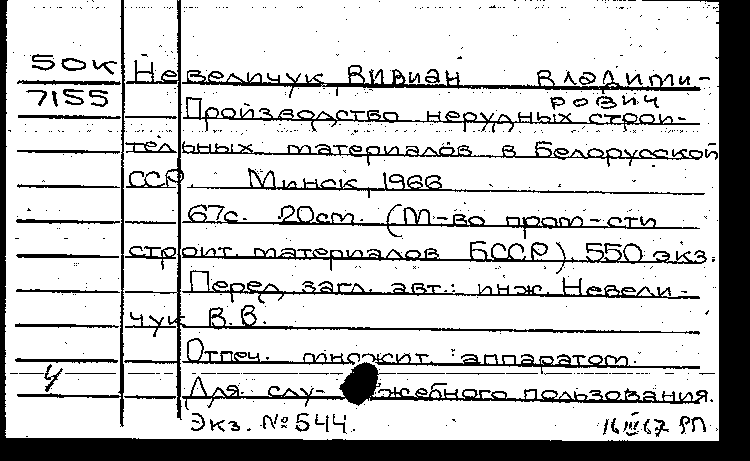 50К Невеличук, Вивиан Владими-
7155 рович
Производство нерудных строи-
тельных материалов в Белорусской
ССР. Минск, 1966
67с. 20см. (М-во пром-сти
строит. материалов БССР). 550 экз.
Перед загл. авт.: инж. Невели-
чук В.В.
Отпеч. множит. аппаратом.
У Для слу- жебного пользования.
Экз. № 544. 16 III 67 РП